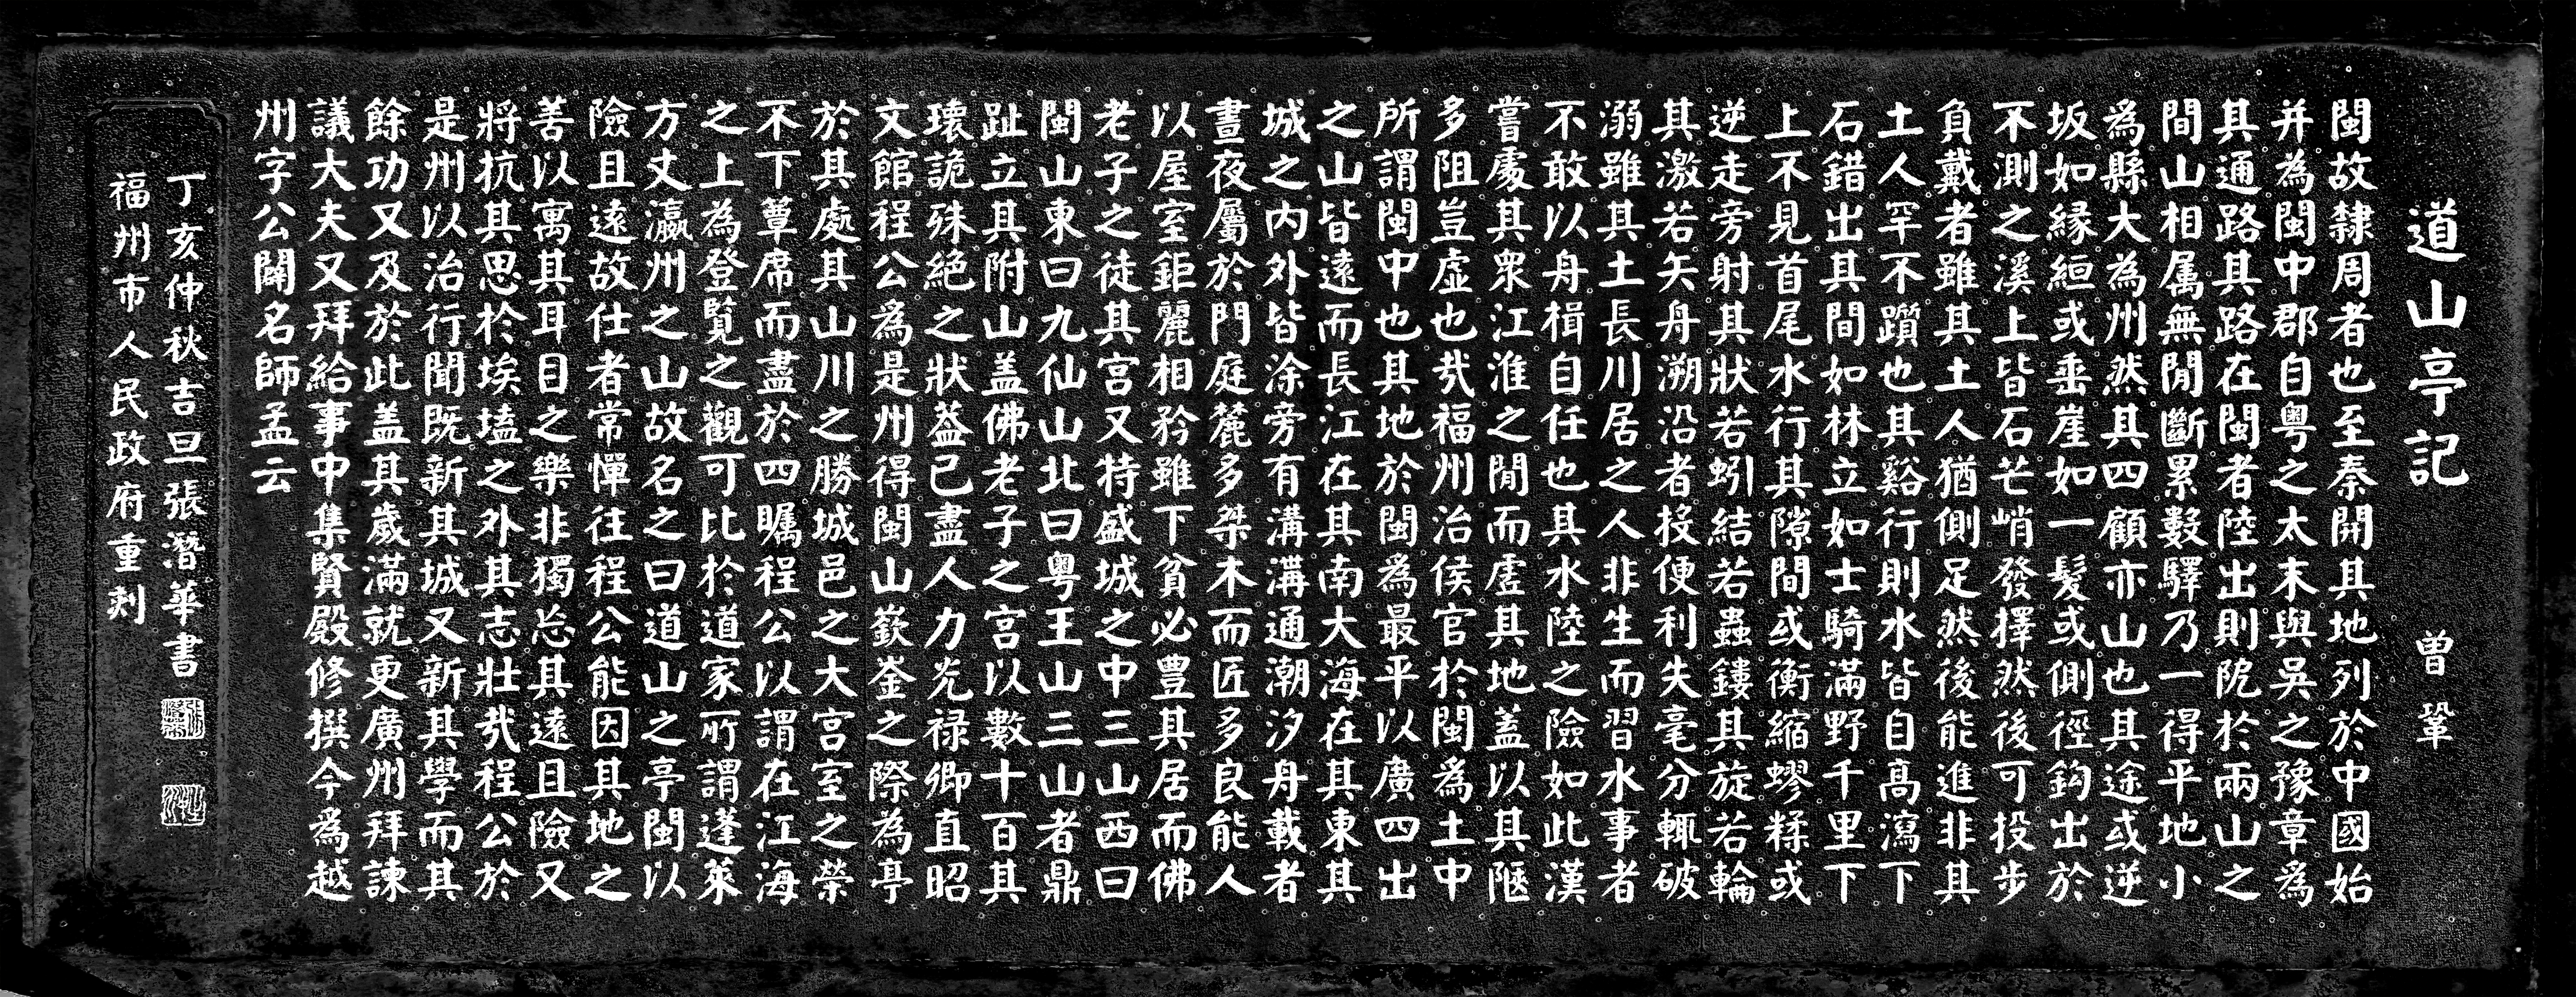 道山亭記
曾鞏
閩故隸周者也至秦開其地列於中國始
并為閩中郡自粤之太末與吳之豫章為
其通路其路在閩者陸出則阨於兩山之
間山相属無間斷累數驛乃一得平地小
為縣大為州然其四顧亦山也其途或逆
坂如緣絙或垂崖如一髮或側徑鈎出於
不測之溪上皆石芒峭發擇然後可投步
負戴者雖其土人猶側足然後能進非其
土人罕不躓也其谿行則水皆自高瀉下
石錯出其間如林立如士騎滿野千里下
上不見首尾水行其隙間或衡縮蟉糅或
逆走旁射其狀若蚓結若蟲鏤其旋若輪
其激若矢舟溯沿者投便利失毫分輒破
溺雖其土長川居之人非生而習水事者
不敢以舟楫自任也其水陸之險如此漢
嘗處其眾江淮之間而虛其地蓋以其陿
多阻豈虛也㢤福州治侯官於閩為土中
所謂閩中也其地於閩為最平以廣四出
之山皆遠而長江在其南大海在其東其
城之內外皆涂旁有溝溝通潮汐舟載者
晝夜屬於門庭麓多桀木而匠多良能人
以屋室鉅麗相矜雖下貧必豐其居而佛
老子之徒其宮又特盛城之中三山西曰
閩山東曰九仙山北曰粤王山三山者鼎
趾立其附山盖佛老子之宮以數十百其
瓌詭殊絕之狀葢已盡人力光禄卿直昭
文館程公為是州得閩山嶔崟之際為亭
於其處其山川之勝城邑之大宮室之榮
不下簟席而盡於四矚程公以謂在江海
之上為登覽之觀可比於道家所謂蓬萊
方丈瀛州之山故名之曰道山之亭閩以
險且遠故仕者常憚往程公能因其地之
善以寓其耳目之樂非獨忘其遠且險又
將抗其思於埃壒之外其志壯㢤程公於
是州以治行聞既新其城又新其學而其
餘功又及於此盖其歲滿就更廣州拜諫
議大夫又拜給事中集賢殿修撰今為越
州字公闢名師孟云
丁亥仲秋吉旦張潛華書
福州市人民政府重刻